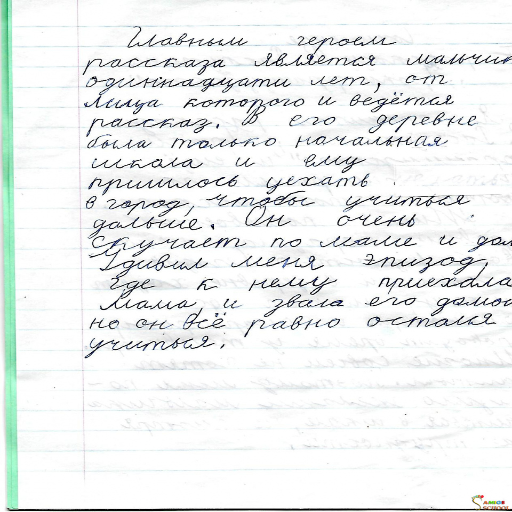 Главным героем
рассказа является мальчик
одиннадцати лет, от
лица которого и ведётся
рассказ. В его деревне
была только начальная
школа и ему
пришлось уехать
в город, чтобы учиться
дальше. Он очень
скучает по маме и дом
Удивил меня эпизод,
где к нему приехала
мама и звала его домой
но он всё равно остался
учиться.
SCHOOL